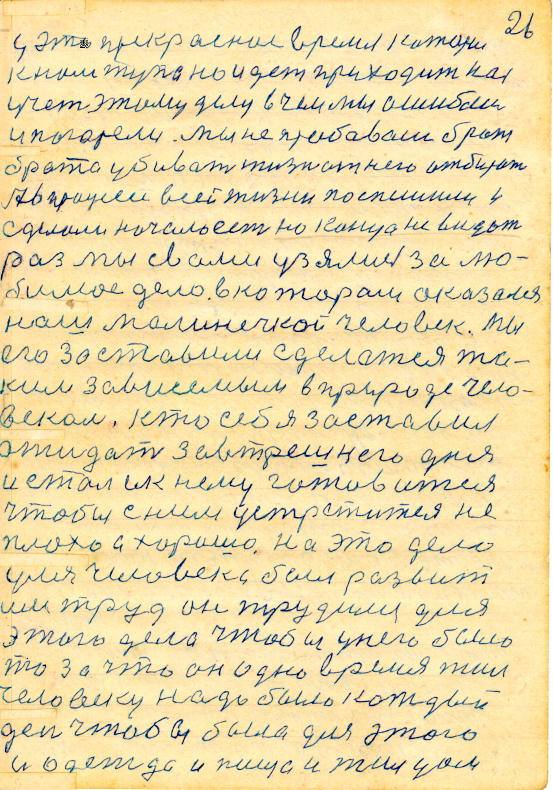 26
у это прекрасное время котори
к ном тупа но идет приходит как
учет этому делу в чем мы ошиблис
и погорели. мы не пробавали брат
брата убиват жизн от него отбират
Ав процесе всей жизни поспешили и
сделали начало ест но конца не видат
раз мы свами узялис за лю-
бимое дело. в котором оказался
наш малинечкой человек. мы
его заставили сделатся та-
ким зависемым в природе чело-
веком. кто себя заставил
ожидат завтрешнего дня
и стал ик нему готовится
чтобы сним устрстится не
плохо а хорошо. на это дело
у для человека был развит
им труд он трудилс для
этого дела чтобы унего было
то за что он одно время жил
человеку надо было каждый
ден чтобы была для этого
и одежда и пища и жил дом